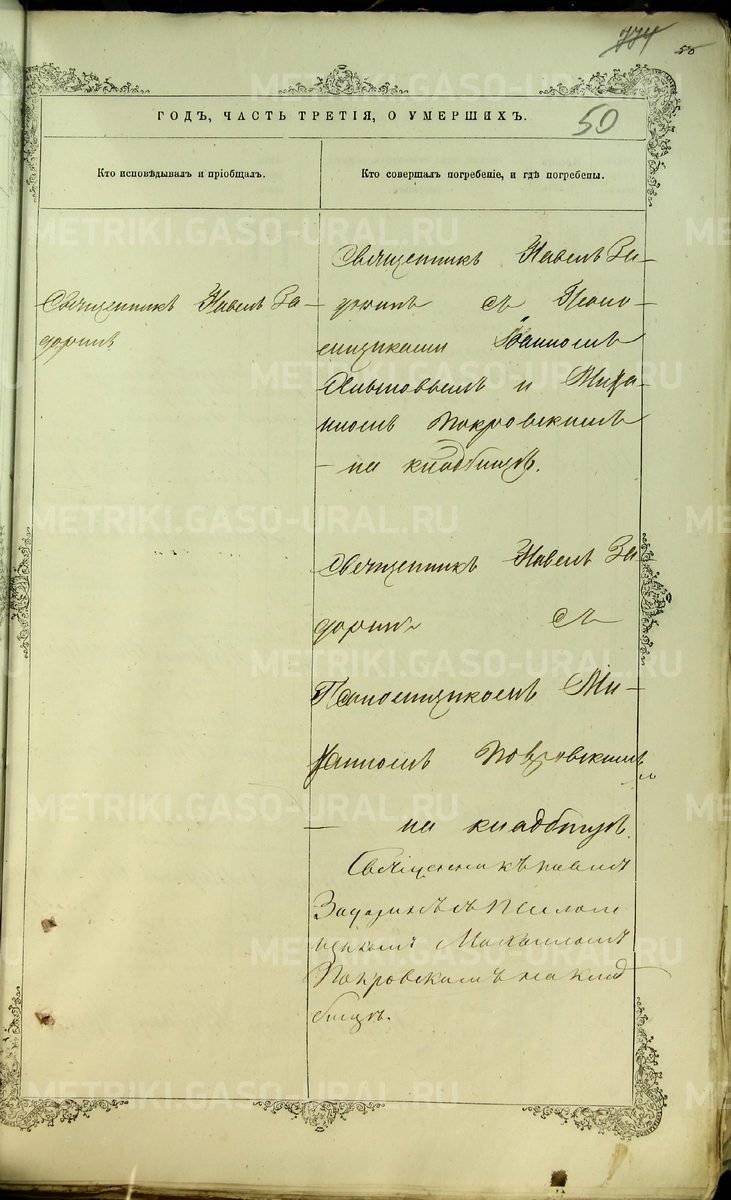 774
56
50
ГОДЪ, ЧАСТЬ ТРЕТІЯ, О УМЕРШИХЪ.
Кто исповѣдывалъ и пріобщалъ.
Кто совершалъ погребеніе, и гдѣ погребены.
Священникъ Павелъ За-
доринъ
Священникъ Павелъ За-
доринъ съ Псало-
мщиками Іоанномъ
и Миха-
иломъ Покровскимъ
на кладбищѣ.
Священникъ Павелъ За
доринъ съ
Псаломщикомъ Ми-
хаиломъ Покровскимъ
на кладбищѣ.
Священникъ Павелъ
Задоринъ съ Псаломщ
щикомъ Михаиломъ
Покровскимъ на клад
бищѣ.
METRIKI.GASO-URAL.RU